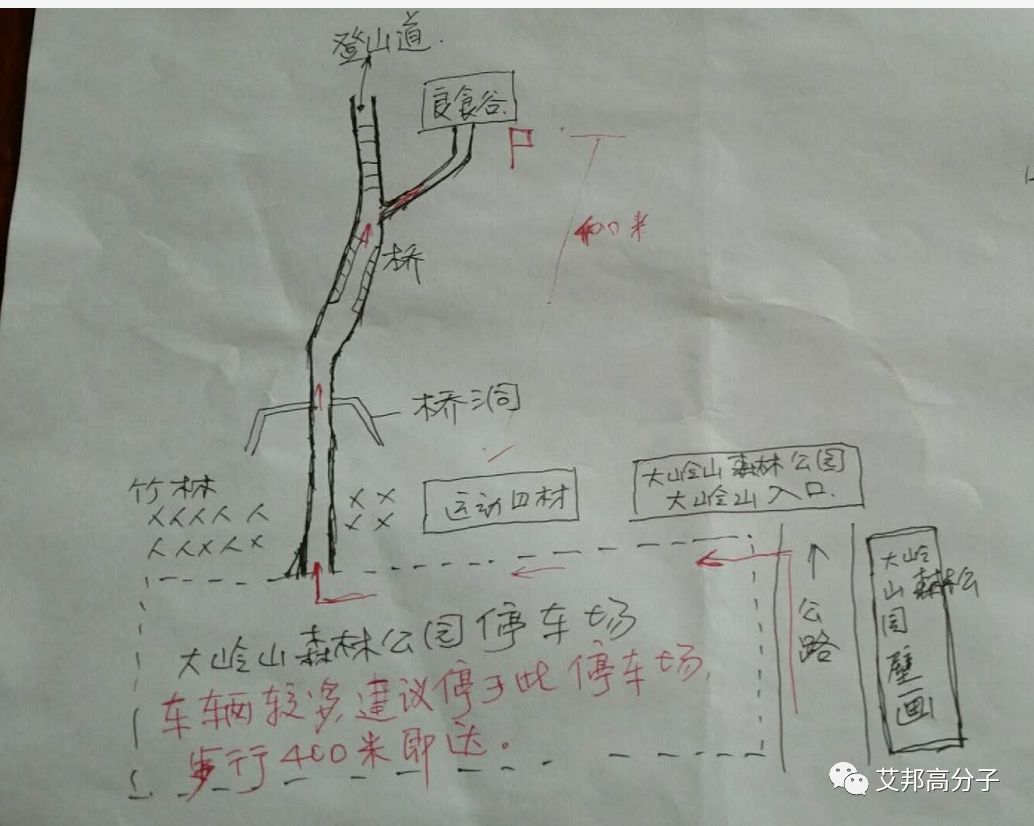 登山道
良食谷
P
400米
桥
桥洞
竹林
运动四材
大岭山森林公园
大岭山入口
公路
大岭
山森林公
园
壁
画
大岭山森林公园停车场
车辆较多建议停于此停车场,
步行400米即达。
艾邦高分子